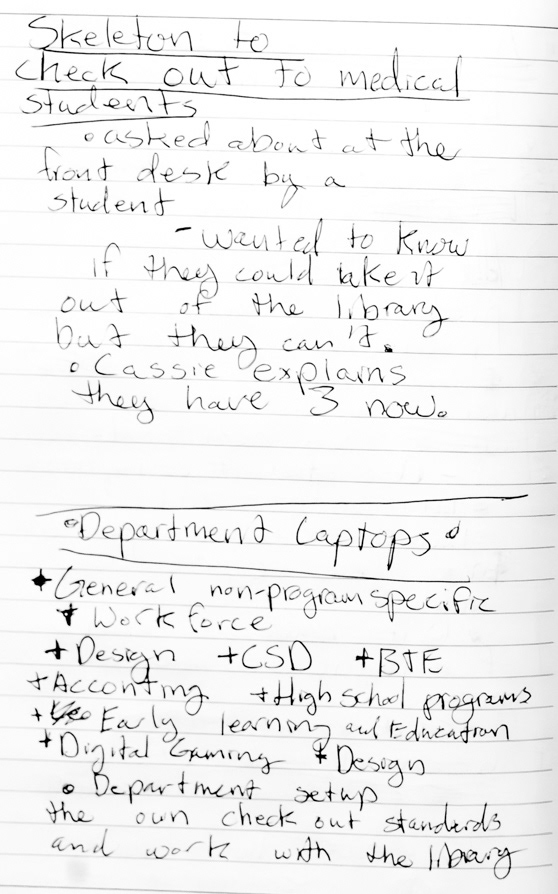 Skeleton to
check out to medical
students
• asked about at the
front desk by a
student
- wanted to know
if they could take it
out of the library
but they can't.
• Cassie explains
they have 3 now.
•Department Laptops•
+General non-program specific
+ Work force
+Design +CSD +BTE
+Acconting +High school programs
+ Early learning and Education
+Digital Gaming +Design
• Department setup
the own check out standerds
and work with the library